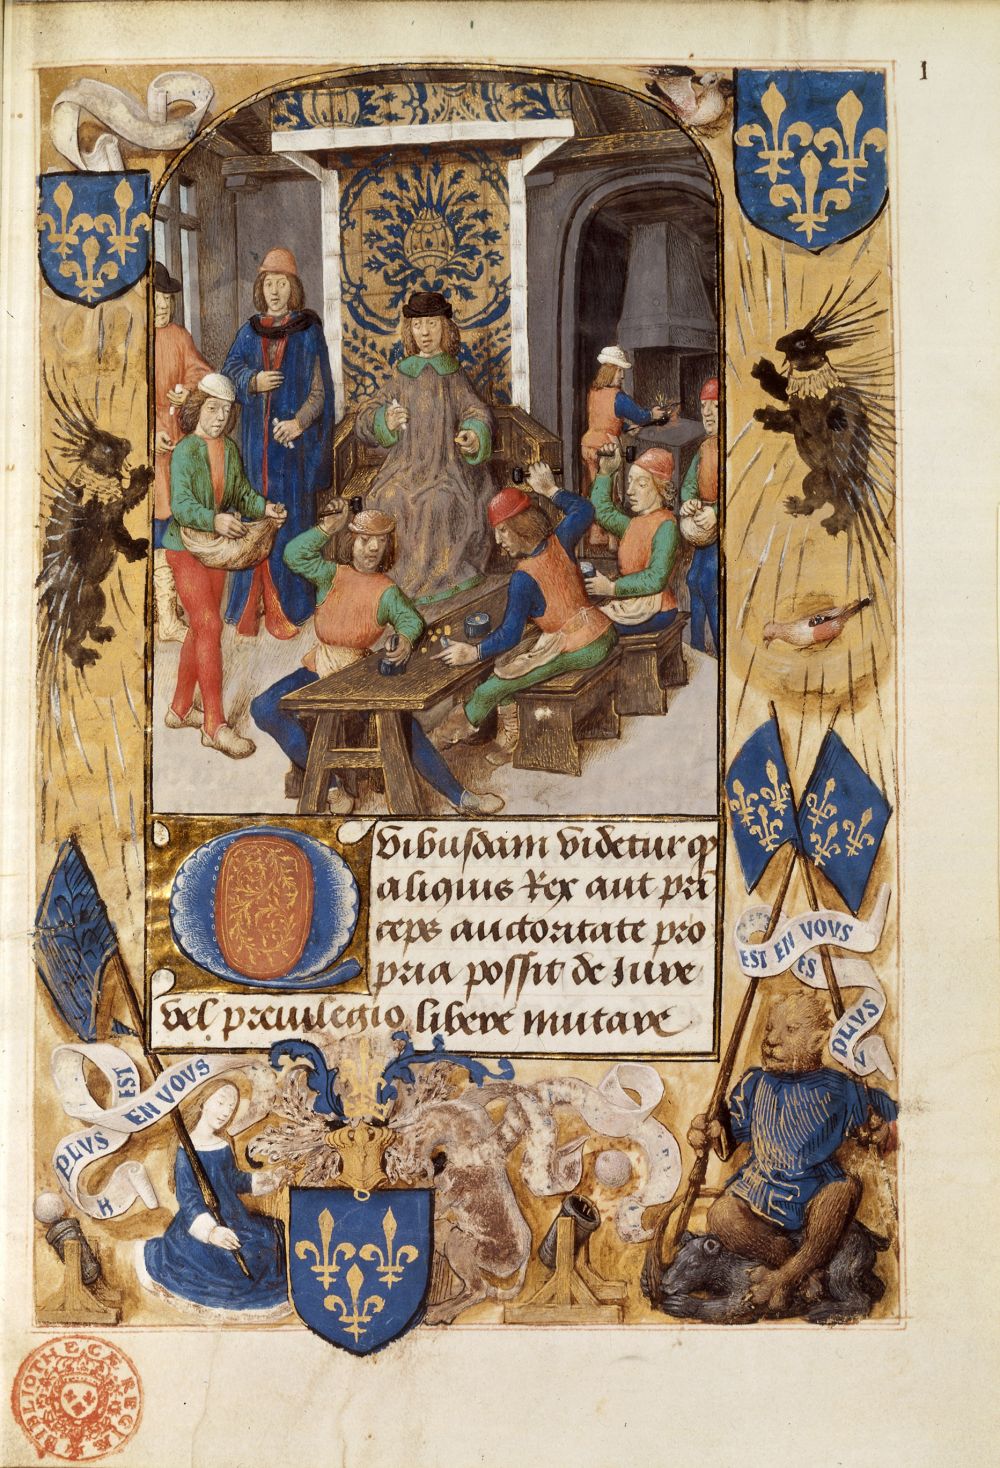 1
Quibusdam videtur ꝙ
aliquis Rex aut pri
ceps auctoritate pro
pria possit de iure
vel preuilegio libere mutare
EST EN VOVS
ES
PLVS
PLVS EST EN VOVS
BIBLIOTHECÆ REGIÆ